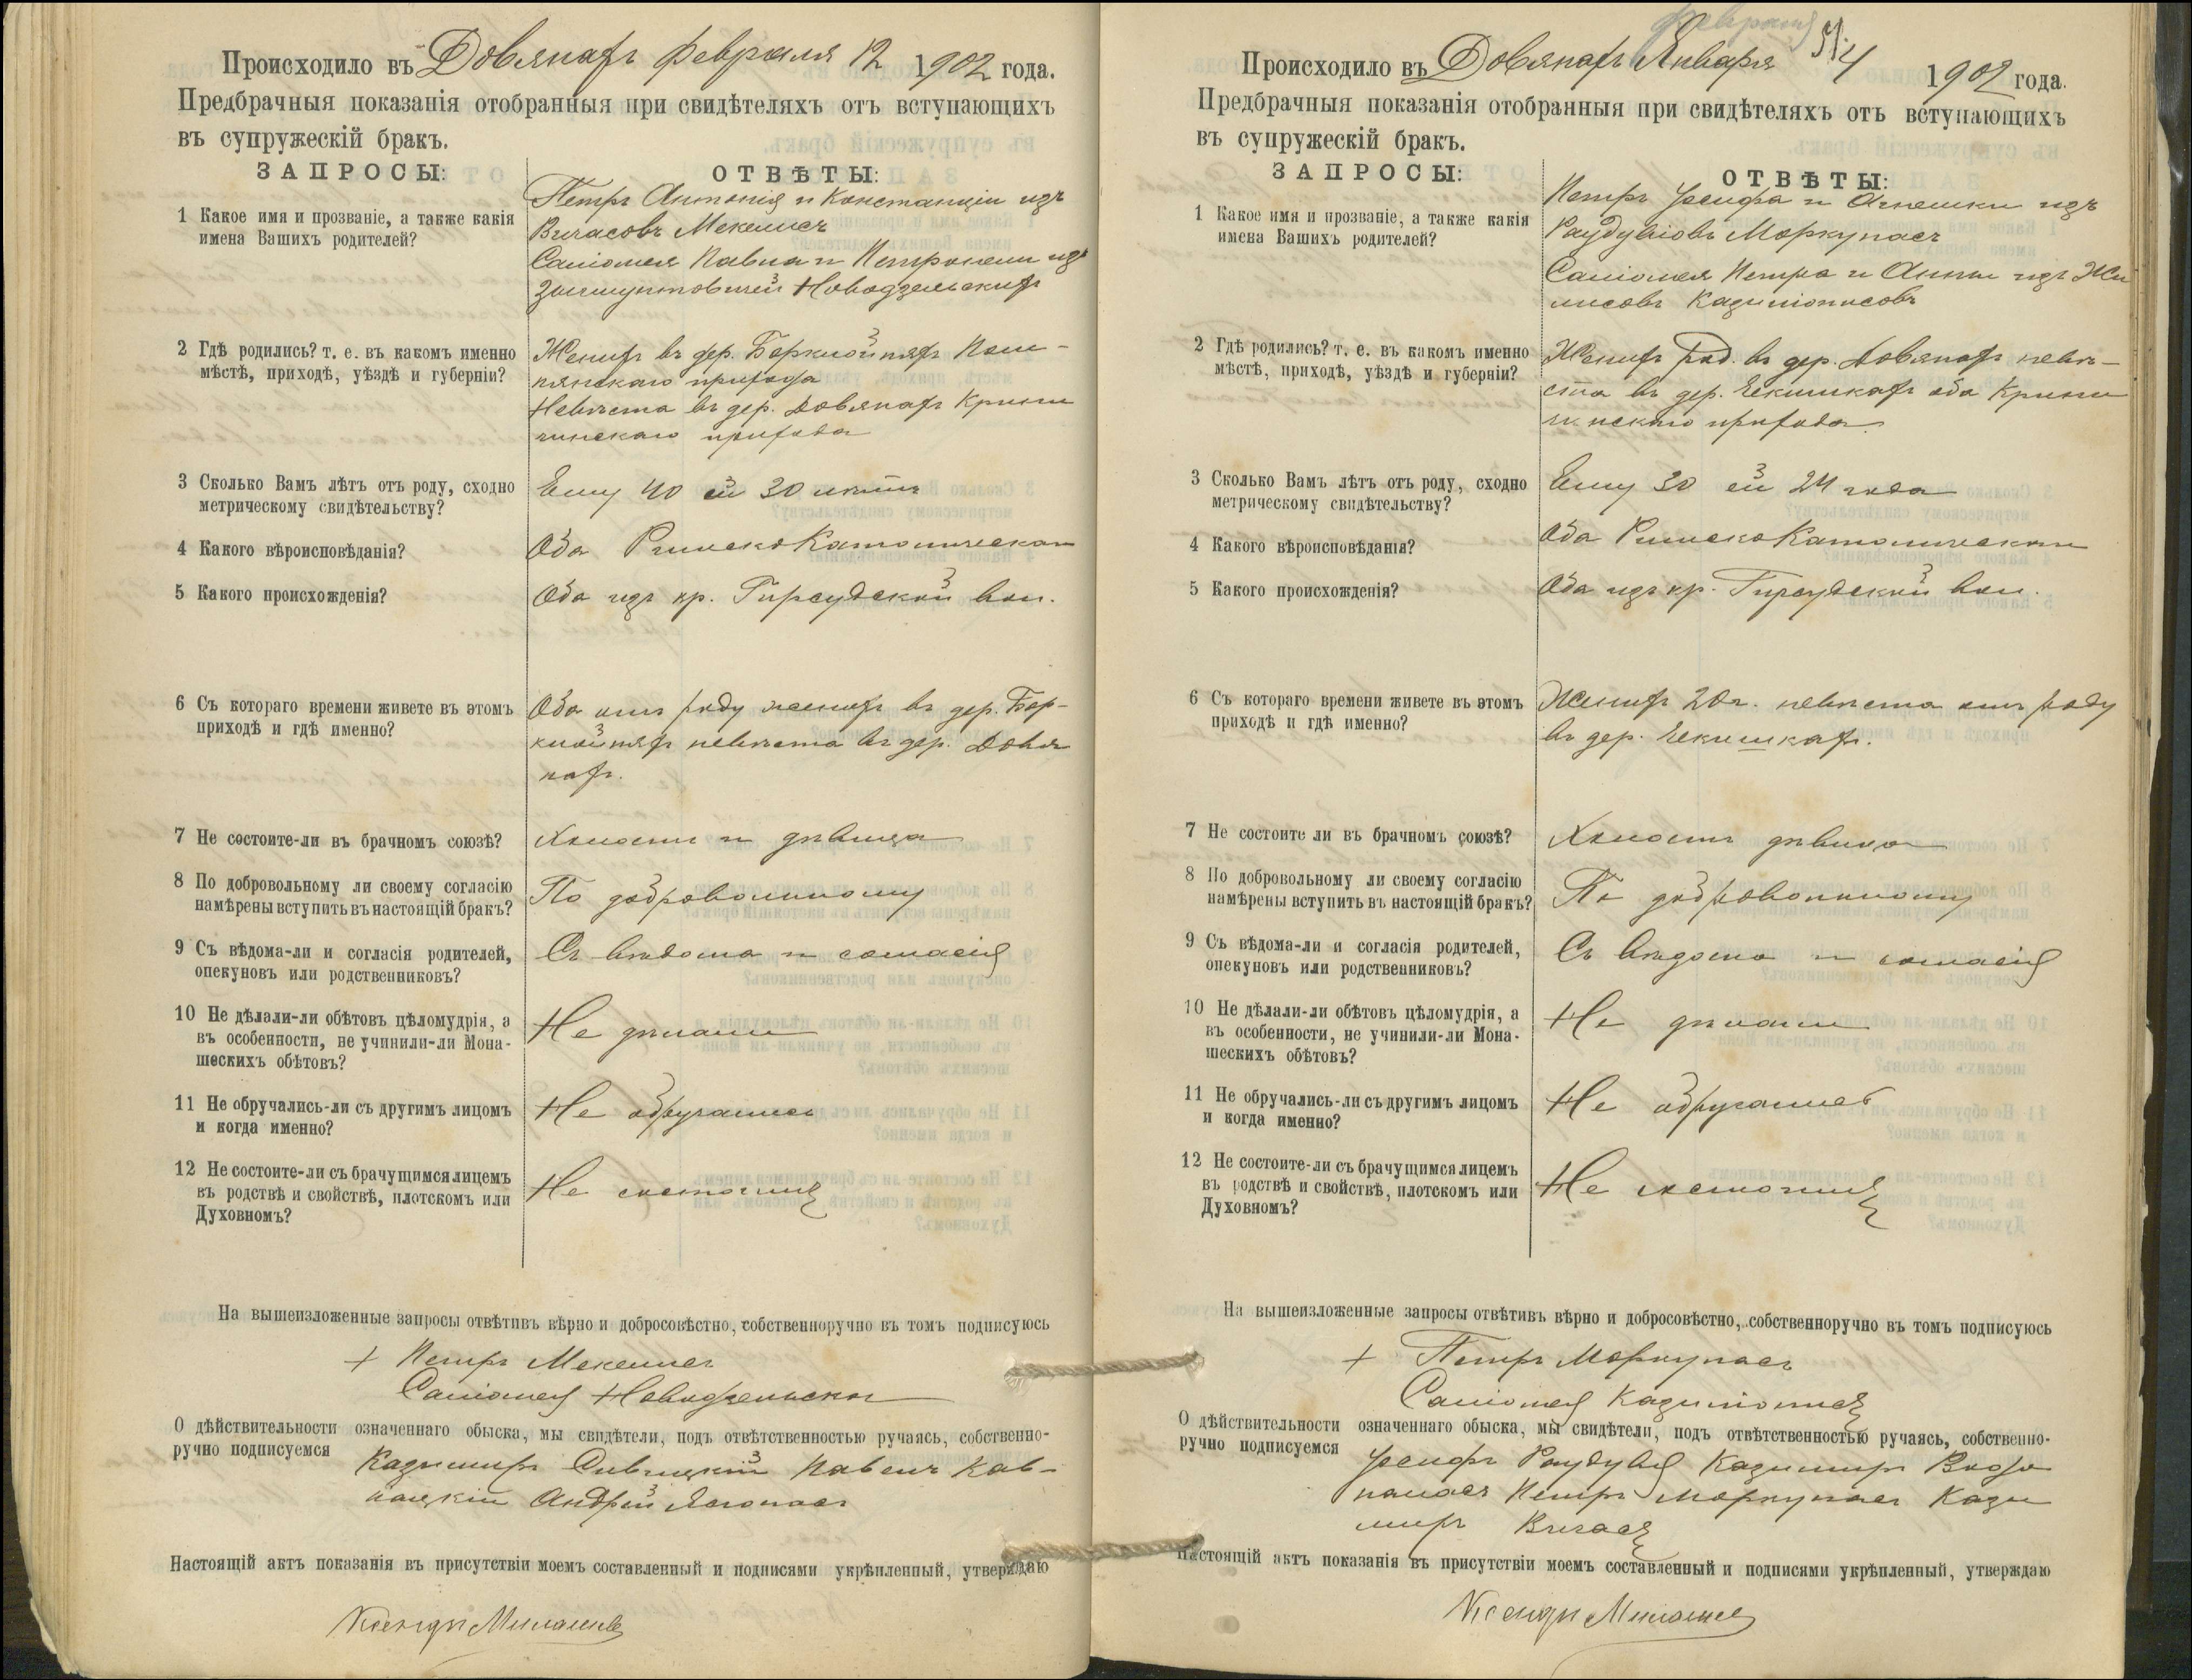 Происходило въ Довянахъ февраля 12 1902 года.
Предбрачныя показанія отобранныя при свидѣтеляхъ отъ вступающихъ
въ супружескій бракъ.
ЗАПРОСЫ:
ОТВѢТЫ:
1 Какое имя и прозваніе, а также какія
имена Вашихъ родителей?
Петръ Антонія и Констанціи изъ
Вичасовъ Мекелисъ
Саліомея Павла и Петронели изъ
Новодзельскихъ
2 Гдѣ родились? т. е. въ какомъ именно
мѣстѣ, приходѣ, уѣздѣ и губерніи?
Женихъ въ дер.
прихода
Невѣста въ дер. Довянахъ Крин
чинскаго прихода
3 Сколько Вамъ лѣтъ отъ роду, сходно
метрическому свидѣтельству?
Ему 40 ей 30 лѣтъ
4 Какого вѣроисповѣданія?
Оба РимскоКатолическаго
5 Какого происхожденія?
Оба изъ кр. Гирсудской вол.
6 Съ котораго времени живете въ этомъ
приходѣ и гдѣ именно?
Оба отъ роду женихъ въ дер.
невѣста въ дер. Довя
нахъ.
7 Не состоите-ли въ брачномъ союзѣ?
Холостъ и дѣвица
8 По добровольному ли своему согласію
намѣрены вступить въ настоящій бракъ?
По добровольному
9 Съ вѣдома-ли и согласія родителей,
опекуновъ или родственниковъ?
Съ вѣдома и согласія
10 Не дѣлали-ли обѣтовъ цѣломудрія, а
въ особенности, не учинили-ли Мона-
шескихъ обѣтовъ?
Не дѣлали
11 Не обручались-ли съ другимъ лицомъ
и когда именно?
Не обручались
12 Не состоите-ли съ брачущимся лицемъ
въ родствѣ и свойствѣ, плотскомъ или
Духовномъ?
Не состоимъ
На вышеизложенные запросы отвѣтивъ вѣрно и добросовѣстно, собственноручно въ томъ подписуюсь
+ Петръ Мекелисъ
Саліомея Новодзельска
О дѣйствительности означеннаго обыска, мы свидѣтели, подъ отвѣтственностью ручаясь, собственно-
ручно подписуемся
Казимиръ Сивицкій Павелъ
Андрей
Настоящій актъ показанія въ присутствіи моемъ составленный и подписями укрѣпленный, утверждаю
Ксендзъ
Происходило въ Довянахъ Января февраля 4 1902 года.
Предбрачныя показанія отобранныя при свидѣтеляхъ отъ вступающихъ
въ супружескій бракъ.
ЗАПРОСЫ:
ОТВѢТЫ:
1 Какое имя и прозваніе, а также какія
имена Вашихъ родителей?
Петръ Іосифа и Агнешки изъ
Раудувіовъ Моркунасъ
Саліомея Петра и Анны изъ
2 Гдѣ родились? т. е. въ какомъ именно
мѣстѣ, приходѣ, уѣздѣ и губерніи?
Женихъ род. въ дер. Довянахъ невѣ-
ста въ дер. Чекишкахъ оба Крин
чинскаго прихода
3 Сколько Вамъ лѣтъ отъ роду, сходно
метрическому свидѣтельству?
Ему 30 ей 24 года
4 Какого вѣроисповѣданія?
Оба РимскоКатолическаго
5 Какого происхожденія?
Оба изъ кр. Гирсудской вол.
6 Съ котораго времени живете въ этомъ
приходѣ и гдѣ именно?
Женихъ невѣста отъ роду
въ дер. Чекишкахъ.
7 Не состоите ли въ брачномъ союзѣ?
Холостъ дѣвица
8 По добровольному ли своему согласію
намѣрены вступить въ настоящій бракъ?
По добровольному
9 Съ вѣдома-ли и согласія родителей,
опекуновъ или родственниковъ?
Съ вѣдома и согласія
10 Не дѣлали-ли обѣтовъ цѣломудрія, а
въ особенности, не учинили-ли Мона-
шескихъ обѣтовъ?
Не дѣлали
11 Не обручались-ли съ другимъ лицомъ
и когда именно?
Не обручались
12 Не состоите-ли съ брачущимся лицемъ
въ родствѣ и свойствѣ, плотскомъ или
Духовномъ?
Не состоимъ
На вышеизложенные запросы отвѣтивъ вѣрно и добросовѣстно, собственноручно въ томъ подписуюсь
+ Петръ Моркунасъ
Саліомея
О дѣйствительности означеннаго обыска, мы свидѣтели, подъ отвѣтственностью ручаясь, собственно-
ручно подписуемся
Іосифъ Раудувя Казимиръ
Петръ Моркунасъ Кази
миръ Вичасъ
Настоящій актъ показанія въ присутствіи моемъ составленный и подписями укрѣпленный, утверждаю
Ксендзъ